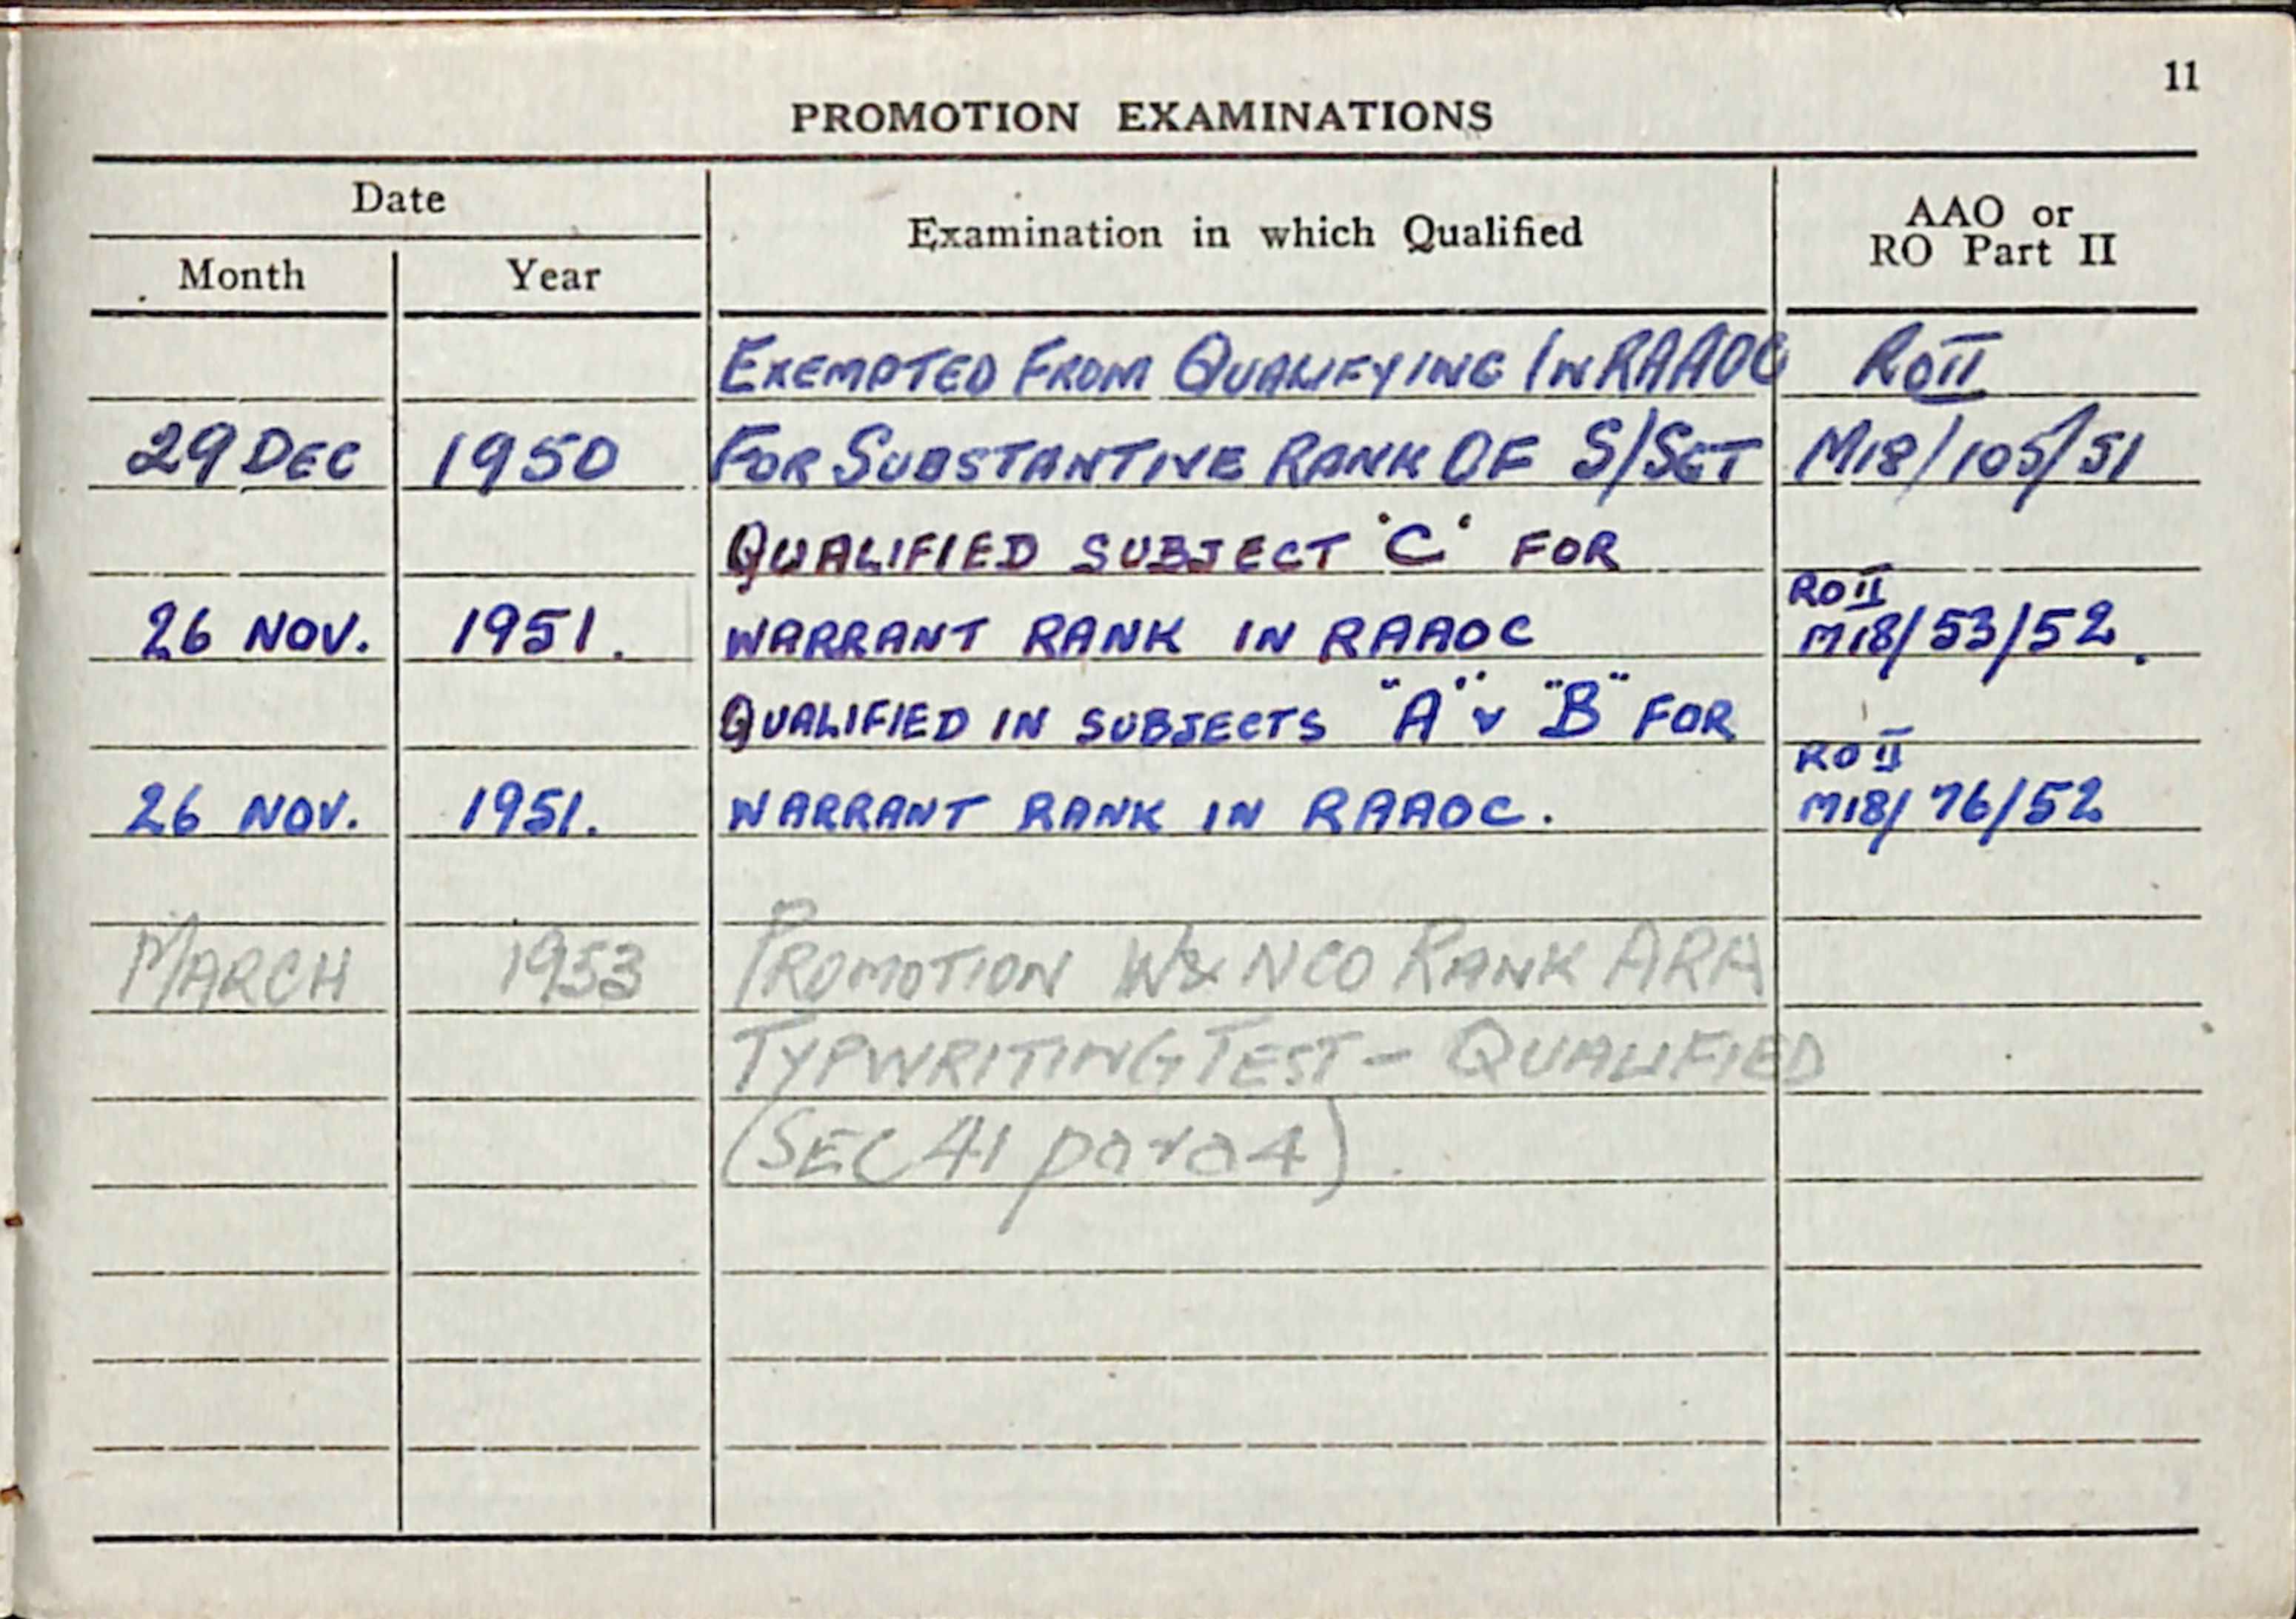 11
PROMOTION EXAMINATIONS
Date
Examination in which Qualified
AAO or
RO Part II
Month Year
EXEMPTED FROM QUALIFYING IN RAAOC ROII
29 DEC 1950 FOR SUBSTANTIVE RANK OF S/SGT M18/105/51
QUALIFIED SUBJECT 'C' FOR
ROII
26 NOV. 1951. WARRANT RANK IN RAAOC M18/53/52.
QUALIFIED IN SUBJECTS "A" & "B" FOR
ROII
26 NOV. 1951. WARRANT RANK IN RAAOC. M18/76/52
MARCH 1953 PROMOTION W & NCO RANK ARA
TYPWRITING TEST - QUALIFIED
(SEC 41 para 4).